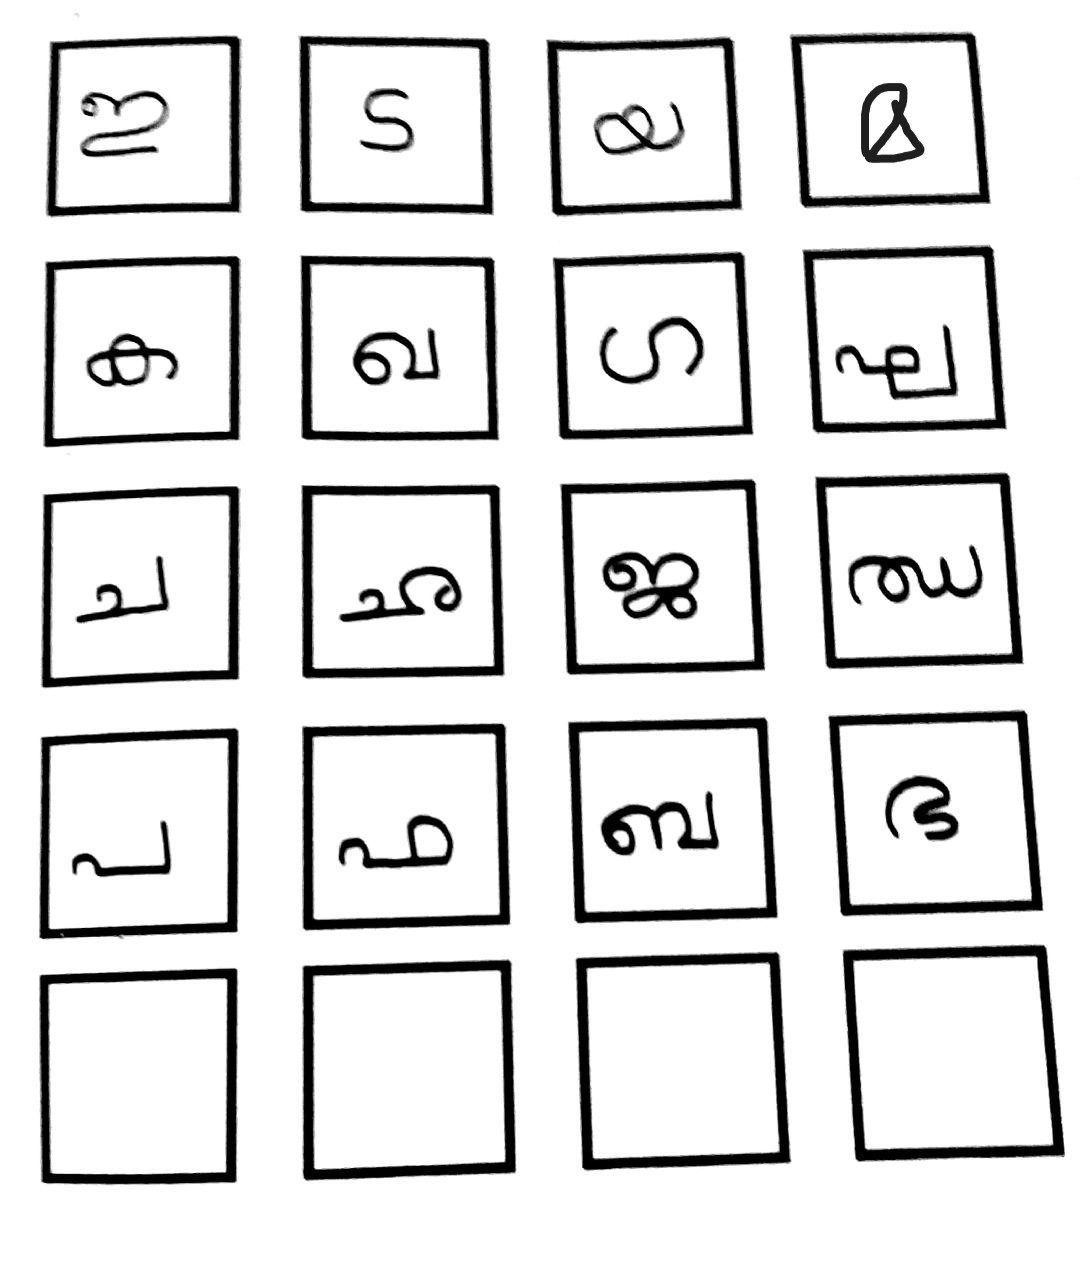 ഇ ട യ ഭ
ക ഖ ഗ ഘ
ച ഛ ജ ഝ
പ ഫ ബ ഭ